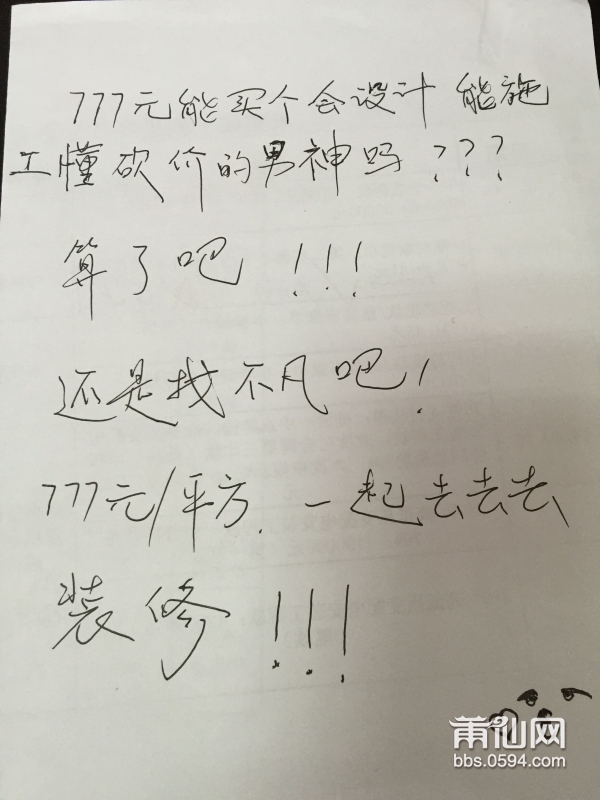 777元能买个会设计 能施
工懂砍价的男神吗???
算了吧!!!
还是找不凡吧!
777元/平方、一起去去去
装修!!!
莆仙网
bbs.0594.com